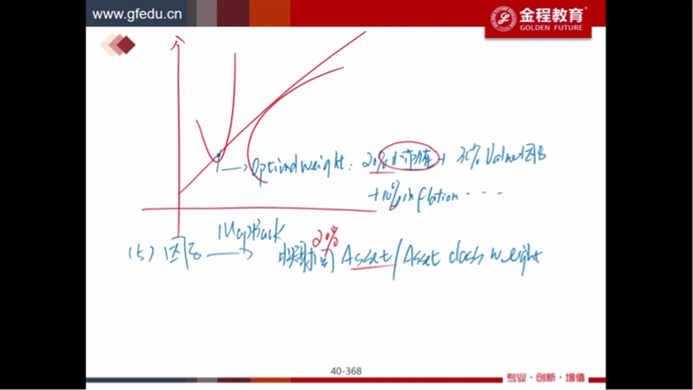 www.gfedu.cn
金程教育
GOLDEN FUTURE
→ Optimal weight: 20%小市值+ 30% Value因子
+10% inflation ...
20%
(5) 因子 Map Back → 映射回 Asset/Asset class weight
40-368
专业·创新·增值